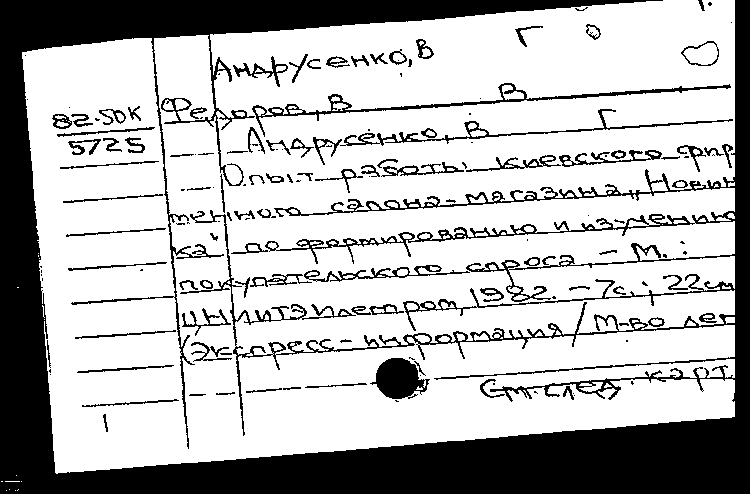 Андрусенко, В Г
82-50к
5725
Федоров, В В
Андрусенко, В Г
Опыт работы киевского фир
менного салона-магазина „Новин
ка" по формированию и изучению
покупательского спроса. - М. :
ЦНИИТЭИлегпром, 1982. - 7с.; 22см
(Экспресс-информация / М-во лег
См. след. карт.
1